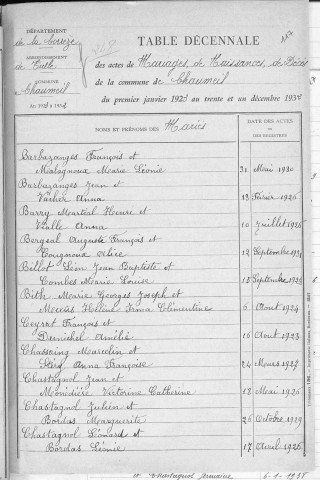 DÉPARTEMENT
de la Corrèze
ARRONDISSEMENT
de Tulle
COMMUNE
Chaumeil
TABLE DÉCENNALE
des actes de Mariages, de Naissances, de Décès
de la commune de Chaumeil
du premier janvier 1923 au trente et un décembre 1932
NOMS ET PRÉNOMS DES Mariés
DATE DES ACTES
DES REGISTRES
Barbazanges François et
Malagnoux Marie Léonie 31 Mai 1930
Barbazanges Jean et
Vacher Anna 13 Février 1926
Barry Martial Henri et
Vialle Anna 10 Juillet 1926
Bergeal Auguste François et
Alice 12 Septembre
Billot Léon Jean Baptiste et
Combes Marie Louise 15 Septembre
Bith Marie Georges Joseph et
Hélène Irma Clémentine 6 Août 1924
Ceyrat François et
Demichel Amélie 16 Août 1923
Chassoing Marcelin et
Anna Françoise 24 Mars 1923
Chastagnol Jean et
Monédière Victorine Catherine 17 Mai 1926
Chastagnol Julien et
Bordas Marguerite 26 Octobre 1929
Chastagnol Léonard et
Bordas Léonie 17 Avril 1926
et Chastagnol Germaine 6-1-1938